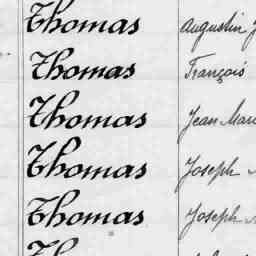 Thomas Augustin
Thomas François
Thomas Jean Mari
Thomas Joseph
Thomas Joseph
Th